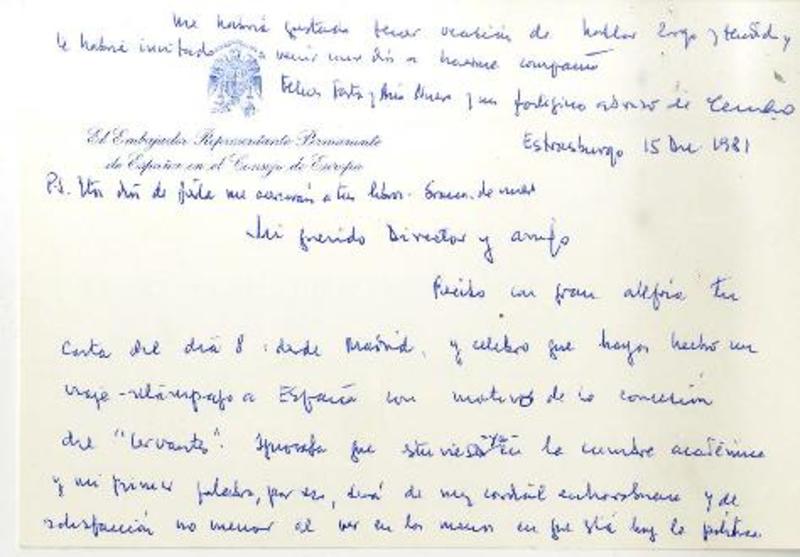 me habría gustado tener ocasión de hablar largo y tendido y
le habría invitado a venir un día a hacerme compañía
Felices Pascuas y Año Nuevo y un fortísimo abrazo de
El Embajador Representante Permanente
de España en el Consejo de Europa
Estrasburgo 15 Dic 1981
P.S. Estos días de me a tu libro. Gracias de
Mi querido Director y amigo
Recibo con gran alegría tu
carta del día 8 desde Madrid, y celebro que hayas hecho un
viaje-relámpago a España con motivo de la concesión
del "Cervantes". Ignoraba que estuvieses ya en la cumbre académica
y mi primer palabra, por eso, será de muy cordial enhorabuena y de
satisfacción no menor al ver en las manos en que está hoy la política